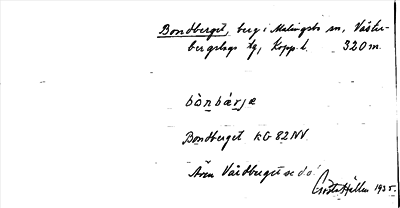 Bondberget, berg i Malingsbo sn, Väster-
bergslags tg, Kopp. l. 320 m.
bònbærjæ
Bondberget KG 82 NV
Även Vårdberget se d.o!
Gösta Hellén 1935.